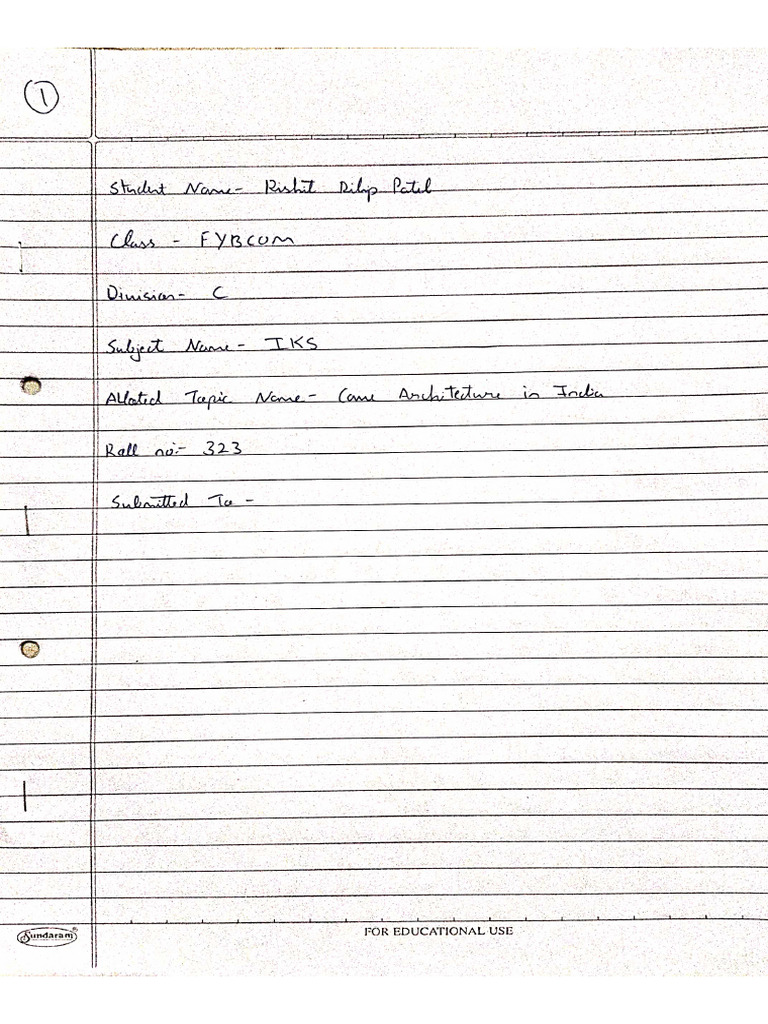 1
Student Name- Rishit Dilip Patel
Class - FYBCOM
Division- C
Subject Name- IKS
Alloted Topic Name- Cave Architecture in India
Roll no:- 323
Submitted To -
Sundaram®
FOR EDUCATIONAL USE